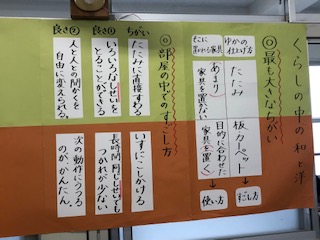 くらしの中の和と洋
◎最も大きなちがい
ゆかの仕上げ方
たたみ
板カーペット
そこに置かれる家具
あまり家具を置かない
目的に合わせた家具を置く
すごし方
使い方
◎部屋の中でのすごし方
ちがい
たたみに直接すわる
いすにこしかける
良さ①
いろいろなしせいをとることができる
長時間同じしせいでもつかれが少ない
良さ②
人と人との間かくを自由に変えられる。
次の動作にうつるのが、かんたん。